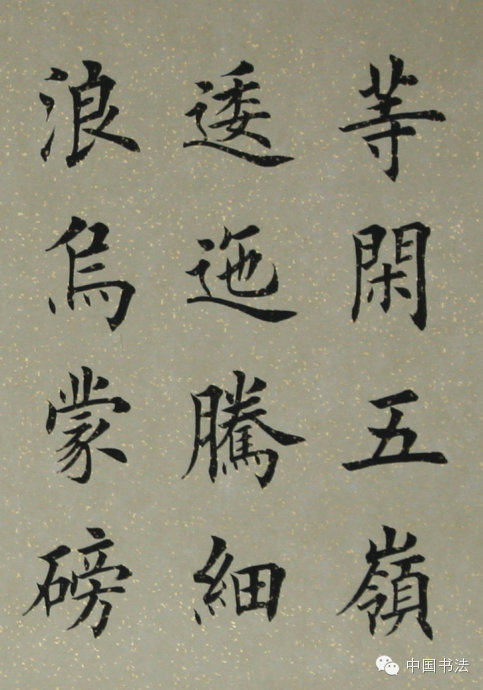 等閑五嶺
逶迤騰細
浪烏蒙磅
中国书法